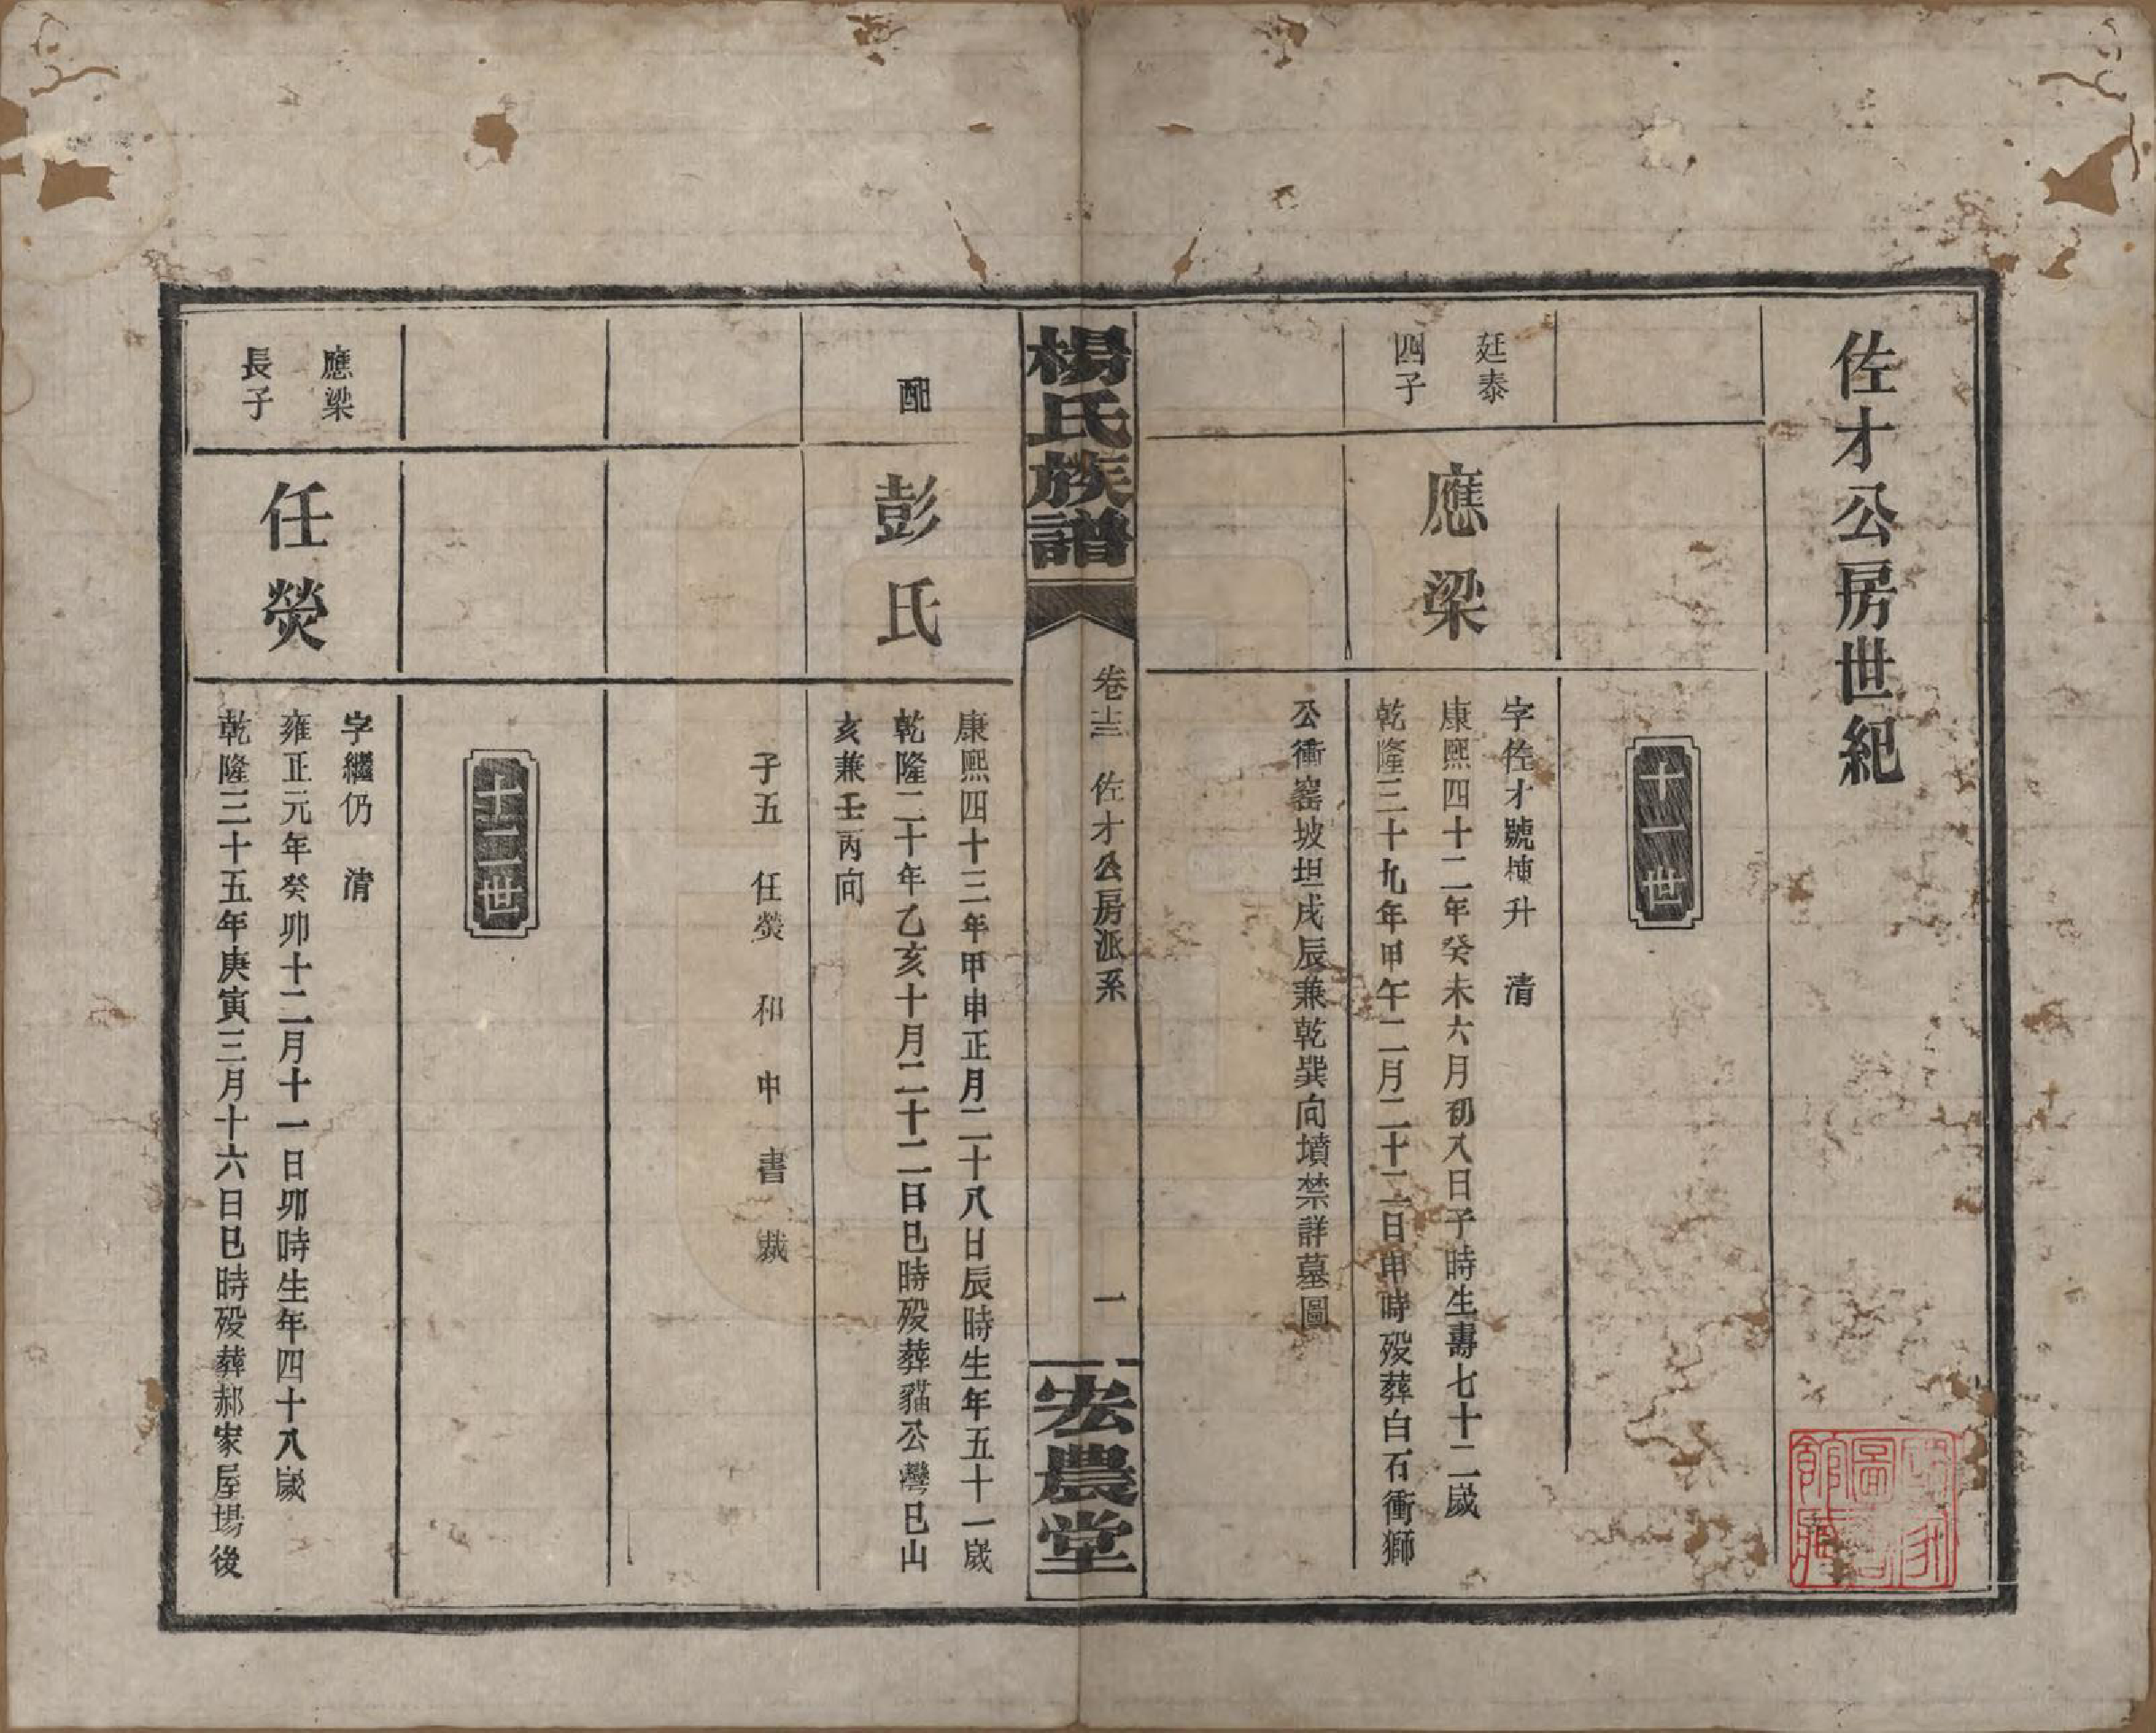 佐才公房世紀
十一世
廷泰
四子
應梁
字佐才號棟升　清
康熙四十二年癸未六月初八日子時生壽七十二歲
乾隆三十九年甲午二月二十二日申時殁葬白石衝獅
公衝窰坡坦戌辰兼乾巽向墳禁詳墓圖
楊氏族譜
卷十三　佐才公房派系
一
宏農堂
配
彭氏
康熙四十三年甲申正月二十八日辰時生年五十一歲
乾隆二十年乙亥十月二十二日巳時殁葬貓公灣巳山
亥兼壬丙向
子五　任熒　和　申　書　裁
十二世
應梁
長子
任熒
字繼仍　清
雍正元年癸卯十二月十一日卯時生年四十八歲
乾隆三十五年庚寅三月十六日巳時殁葬郝家屋場後